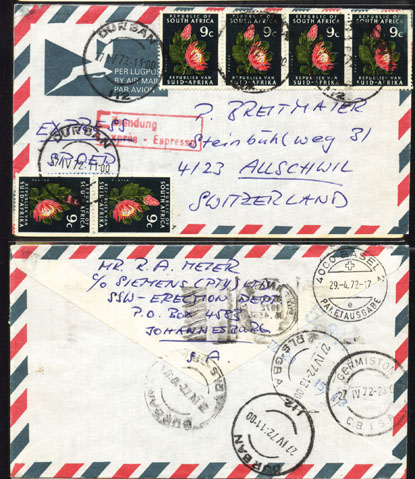 DURBAN
27 IV 72-11-00
112
PER LUGPOS
BY AIR MAIL
PAR AVION
REPUBLIC OF
SOUTH AFRICA
9c
REPUBLIEK VAN
SUID-AFRIKA
REPUBLIC OF
SOUTH AFRICA
9c
REPUBLIEK VAN
SUID-AFRIKA
REPUBLIC OF
SOUTH AFRICA
9c
REPUBLIEK VAN
SUID-AFRIKA
REPUBLIC OF
SOUTH AFRICA
9c
REPUBLIEK VAN
SUID-AFRIKA
EXPRESS
SPOED
DURBAN
IV 72-11-00
Sendung
Exprès - Espresso
P. BREITMAIER
Steinbühlweg 31
4123 ALLSCHWIL
SWITZERLAND
REPUBLIC OF
SOUTH AFRICA
9c
SUID-AFRIKA
REPUBLIC OF
SOUTH AFRICA
9c
SUID-AFRIKA
MR. R.A. MEIER
c/o SIEMENS (PTY) LTD
SSW-ERECTION DEPT
P.O. BOX 4583
JOHANNESBURG
S.A
4000 BASEL 2
29.-4.72-17
e
PAKETAUSGABE
27 IV 72-13-00
GERMISTON
27 IV 72
DURBAN
112
27 IV 72-11-00
DURBAN